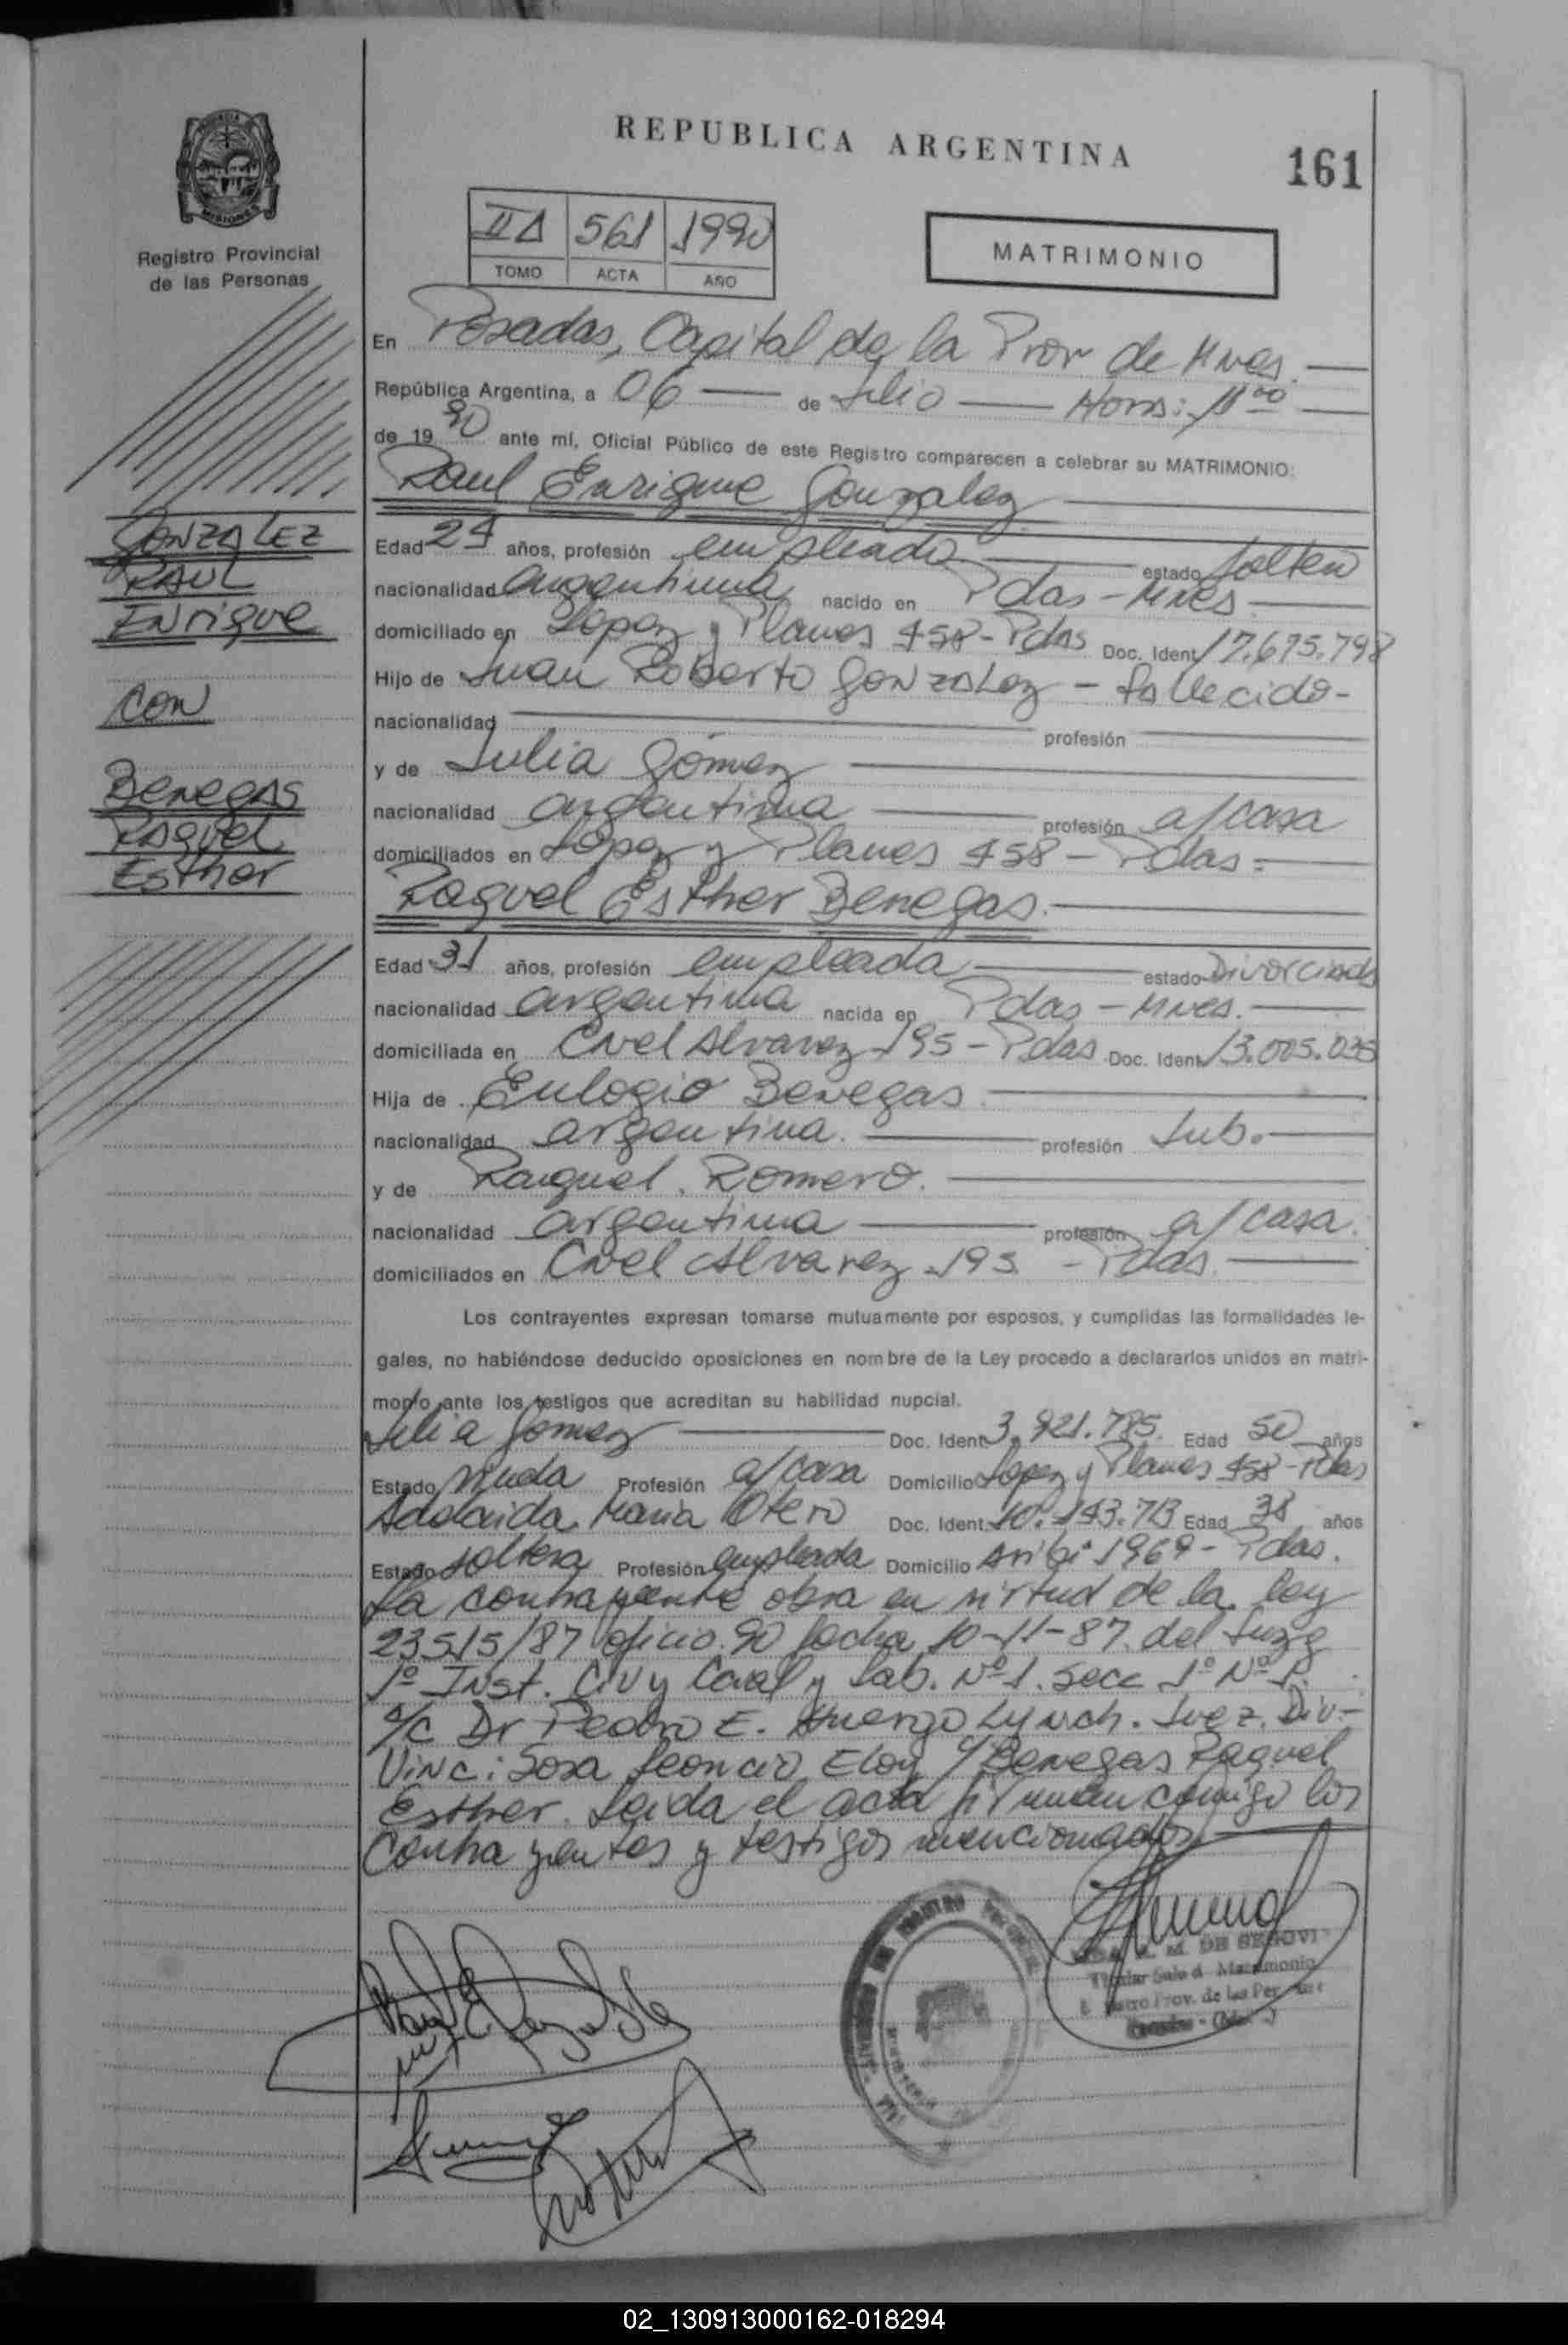 REPUBLICA ARGENTINA
161
MISIONES
Registro Provincial
de las Personas
II 561 1990
TOMO ACTA AÑO
MATRIMONIO
En Posadas, Capital de la Prov de Mnes.
República Argentina, a 06 de Julio Horas: 11 00
de 19 90 ante mí, Oficial Público de este Registro comparecen a celebrar su MATRIMONIO:
Raul Enrique Gonzalez
GONZALEZ
RAUL
Enrique
CON
Benegas
Raquel
Esther
Edad 24 años, profesión empleado estado soltero
nacionalidad argentina nacido en Pdas - Mnes
domiciliado en Lopez y Planes 458 - Pdas Doc. Ident. 17.675.798
Hijo de Juan Roberto Gonzalez - fallecido -
nacionalidad profesión
y de Julia Gómez
nacionalidad argentina profesión a/casa
domiciliados en Lopez y Planes 458 - Pdas -
Raquel Esther Benegas.
Edad 31 años, profesión empleada estado Divorciada
nacionalidad argentina nacida en Pdas - Mnes.
domiciliada en Cnel Alvarez 195 - Pdas Doc. Ident. 13.005.035
Hija de Eulogio Benegas
nacionalidad argentina. profesión Jub.
y de Raquel Romero.
nacionalidad argentina profesión a/casa.
domiciliados en Cnel Alvarez 195 - Pdas.
Los contrayentes expresan tomarse mutuamente por esposos, y cumplidas las formalidades le-
gales, no habiéndose deducido oposiciones en nombre de la Ley procedo a declararlos unidos en matri-
monio ante los testigos que acreditan su habilidad nupcial.
Julia Gomez Doc. Ident. 3.921.785. Edad 50 años
Estado viuda Profesión a/casa Domicilio Lopez y Planes 458 - Pdas
Adelaida Maria Otero Doc. Ident. 10.143.713 Edad 38 años
Estado soltera Profesión empleada Domicilio 1969 - Pdas.
La contrayente obra en virtud de la ley
23515/87 oficio 90 fecha 10-11-87. del Juzg
1º Inst. Civ y Ccial y Lab. Nº 1. Secc 1º Nº
a/c Dr Pedro E. Huergo Lynch. Juez. Div.-
Vinc: Sosa Leoncio Eloy c/ Benegas Raquel
Esther. Leida el acta firman conmigo los
contrayentes y testigos mencionados
M. DE SEGOVI
Titular Sala d Matrimonio
Prov. de las Per
02_130913000162-018294